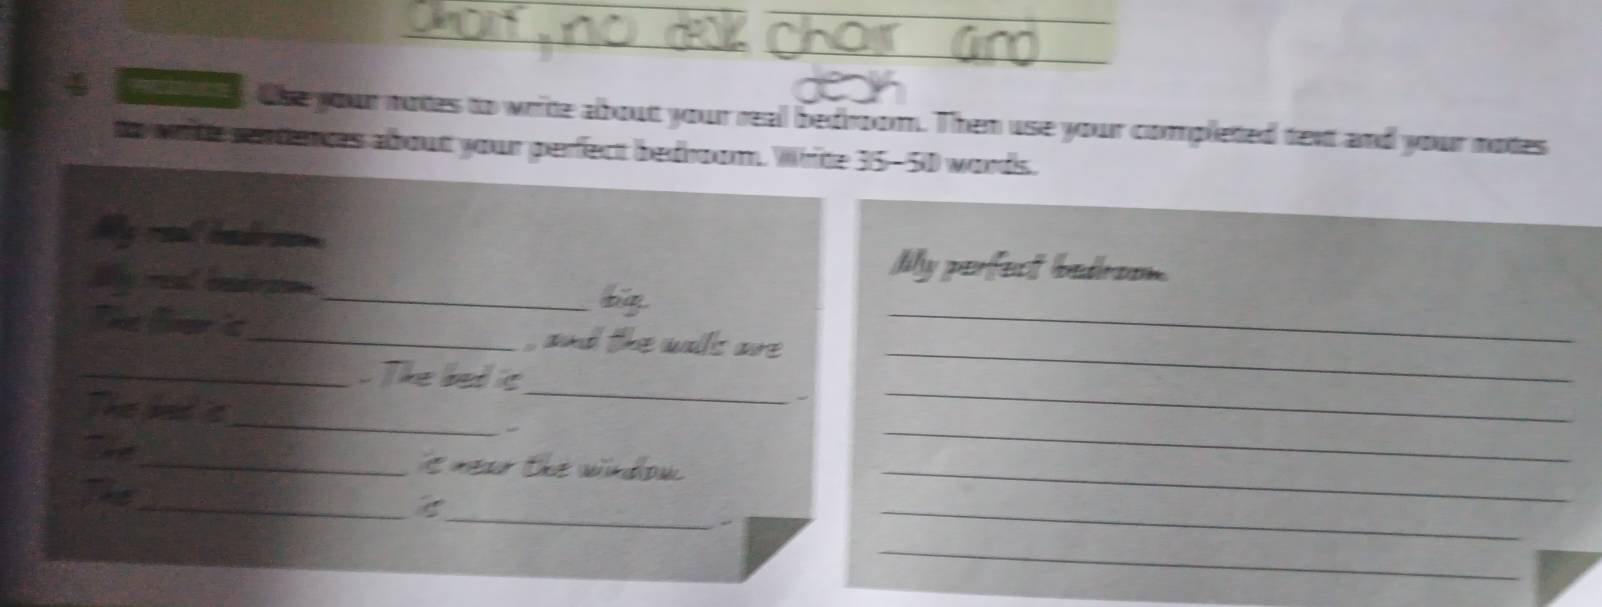 chair, no desk chair and
desk
4 Use your notes to write about your real bedroom. Then use your completed text and your notes
to write sentences about your perfect bedroom. Write 35–50 words.
My real bedroom
My real bedroom big.
The floor is , and the walls are
. The bed is .
The bed is .
The is near the window.
The is .
My perfect bedroom